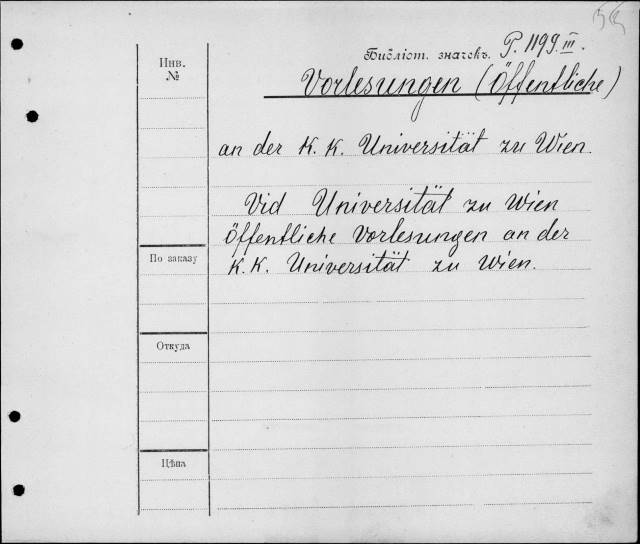 Библіот. значекъ. P. 1199.III.
Инв.
№
Vorlesungen (Öffentliche)
an der K. K. Universität zu Wien.
Vid Universität zu Wien
Öffentliche Vorlesungen an der
K. K. Universität zu Wien.
По заказу
Откуда
Цѣна